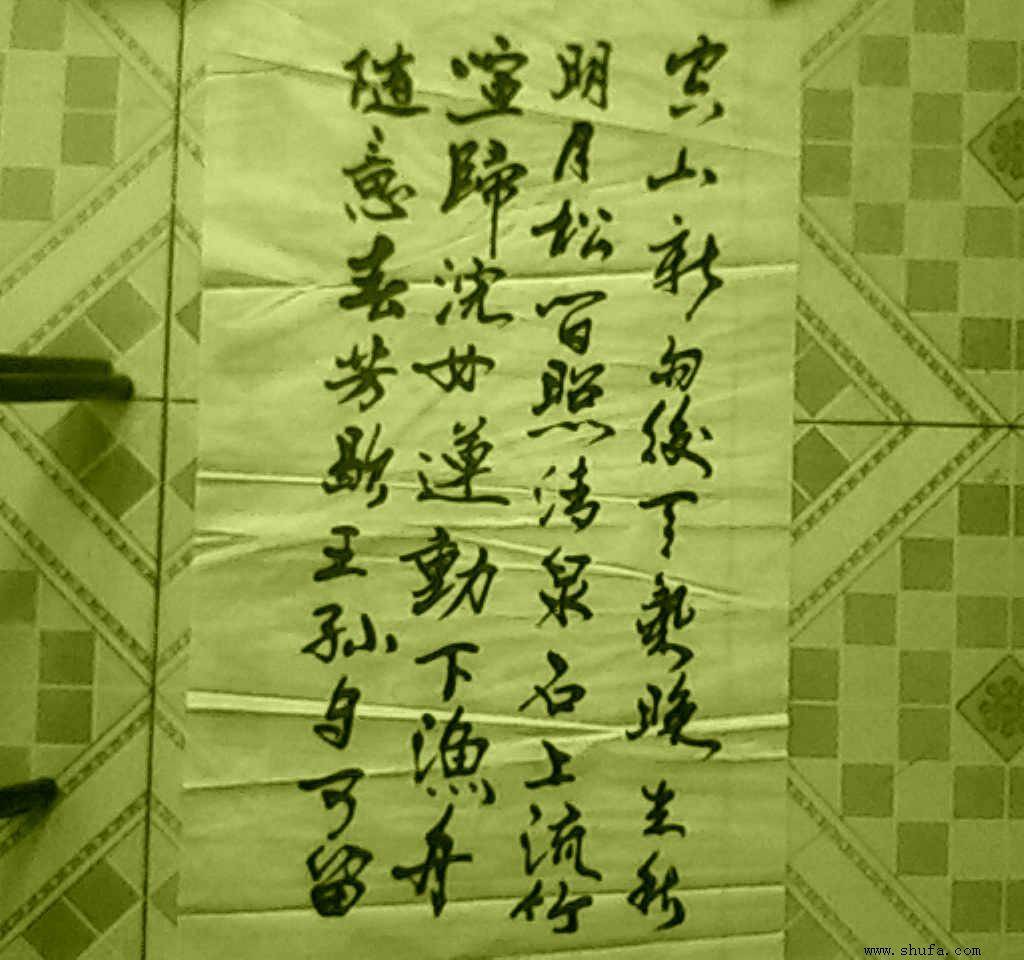 空山新雨後天氣晚来秋
明月松間照清泉石上流竹
喧歸浣女蓮動下漁舟
随意春芳歇王孙自可留
www.shufa.com